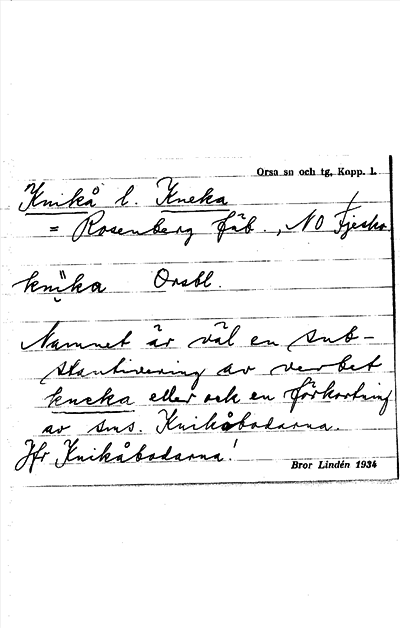 Orsa sn och tg, Kopp. l.
Knikå l. Kneka
= Rosenberg fäb., NO
knika Orsbl.
Namnet är väl en sub-
stantivering av verbet
kneka eller ock en förkortning
av sms. Knikåbodarna.
Jfr Knikåbodarna!
Bror Lindén 1934